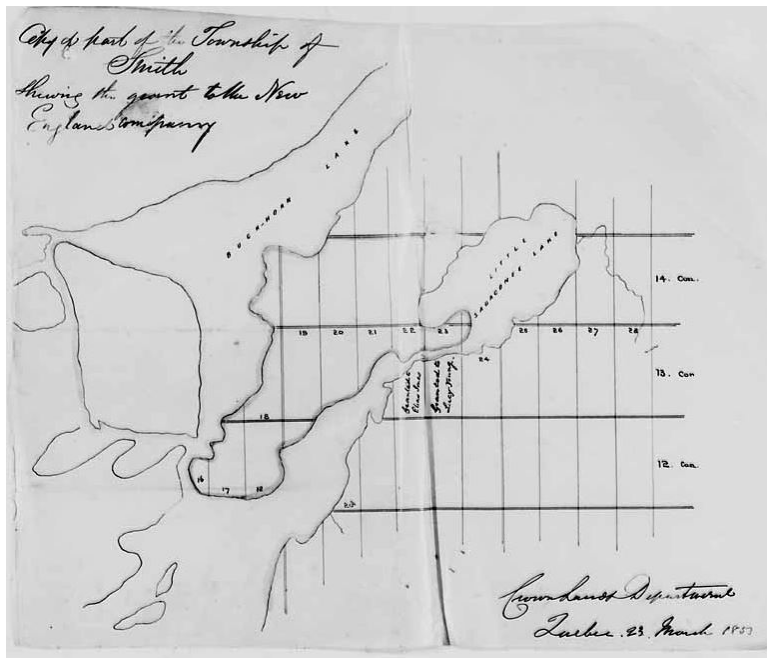 Copy of part of the Township of
Smith
Shewing the grant to the New
England company
BUCKHORN LAKE
LITTLE
SAGACONEE LAKE
14. Con.
19 20 21 22 23 25 26 27 28
24
13. Con
Granted to
Granted to
18
12. Con.
16 17 18
24
Crown Lands Department
Quebec. 23. March